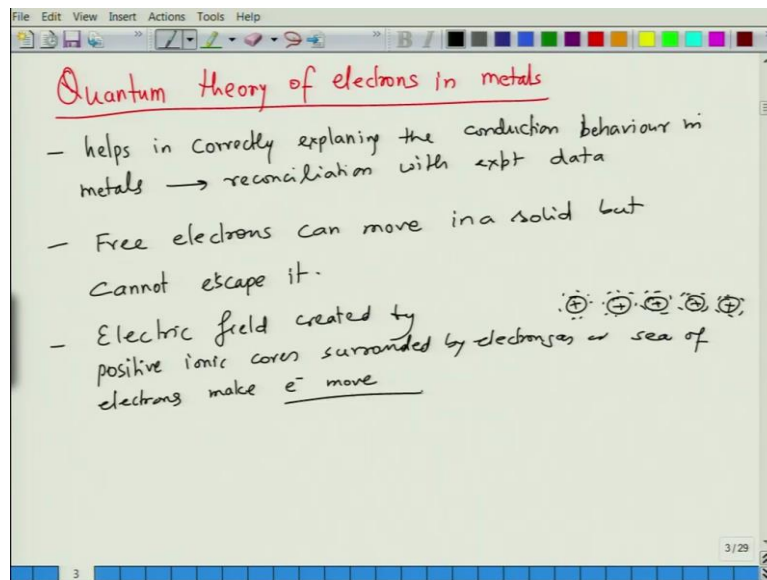 File Edit View Insert Actions Tools Help
Quantum theory of electrons in metals
- helps in correctly explaning the conduction behaviour in
metals → reconciliation with expt data
- Free electrons can move in a solid but
cannot escape it.
- Electric field created by
positive ionic cores surrounded by electrongas or sea of
electrons make e⁻ move
+ + + + +
3/29
3